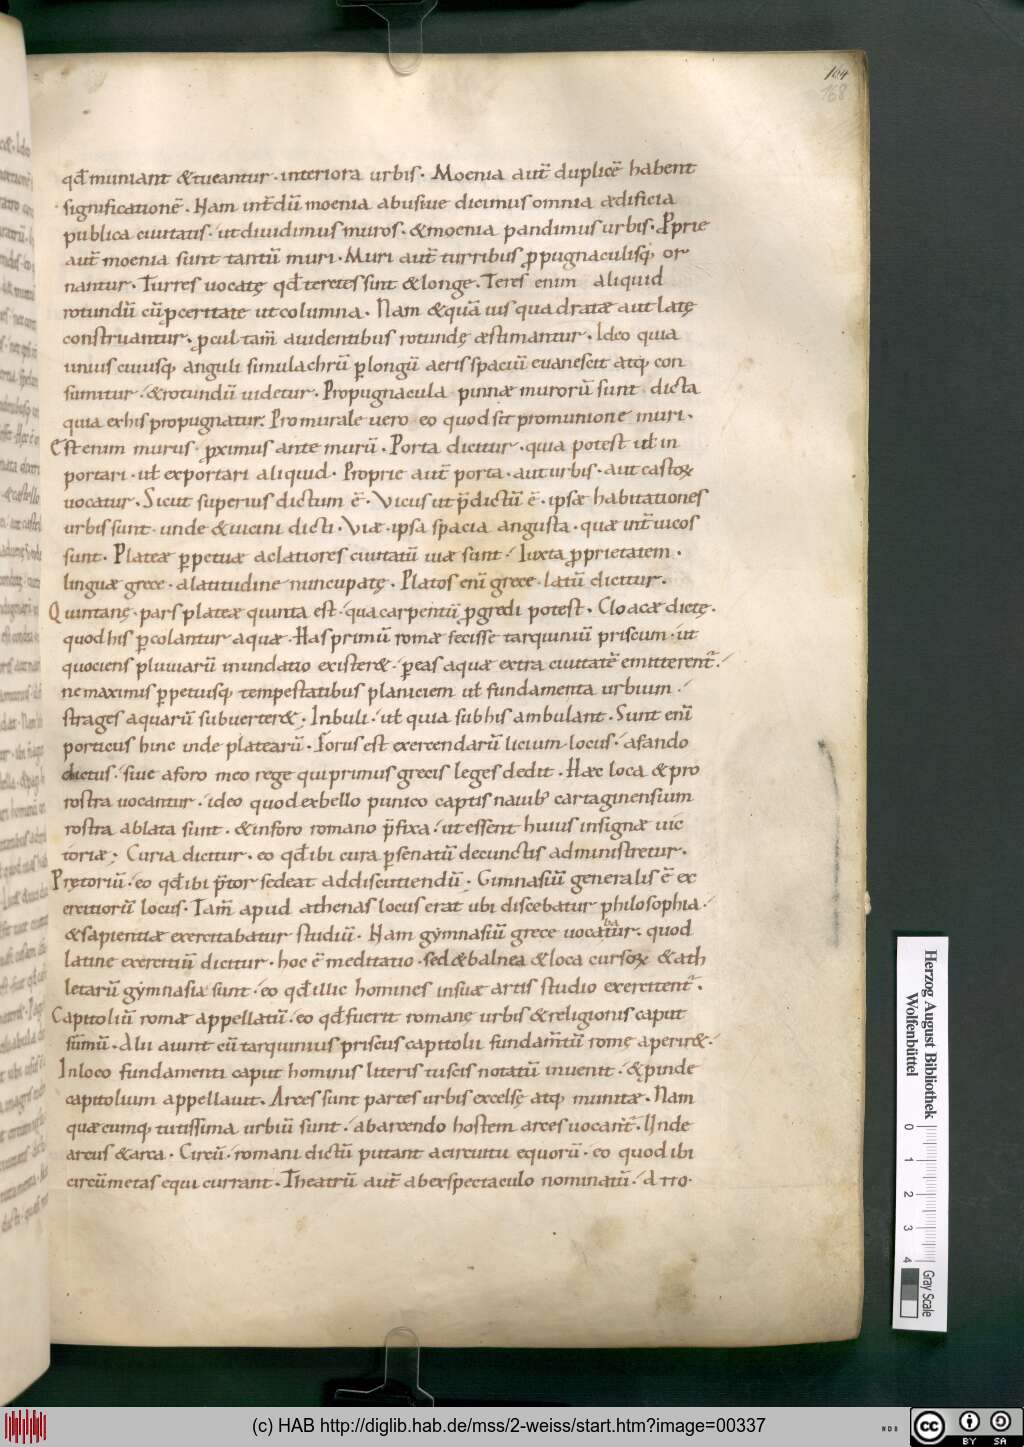 164
168
qđ muniant &tueantur · interiora urbis · Moenia aut̄ duplicē habent
significationē · Nam int̄dū moenia abusiue dicimus omnia ædificia
publica ciuitatis · ut diuidimus muros · &moenia pandimus urbis · Pprie
aut̄ moenia sunt tantū muri · Muri aut̄ turribus p̱pugnaculisq; or
nantur · Turres uocatę qđ teretes sint &longe · Teres enim aliquid
rotundū cū p̱ceritate ut columna · Nam &quā uis quadratæ aut latę
construantur · p̱cul tam̄ a uidentibus rotundę æstimantur · Ideo quia
unius cuiusq; anguli simulachrū p̱ longū aeris spaciū euanescit atq; con
sumitur · &rotundū uidetur · Propugnacula pinnæ murorū sunt dicta
quia ex his propugnatur · Promurale uero eo quod sit pro munione muri ·
Est enim murus · p̱ximus ante murū · Porta dicitur · quia potest ul̄ in
portari · ul̄ exportari aliquid · Proprie aut̄ porta · aut urbis · aut castoꝝ
uocatur · Sicut superius dictum ē · Vicus ut p̄dictū ē · ipsæ habitationes
urbis sunt · unde &uicini dicti · Viæ · ipsa spacia angusta · quæ int̄ uicos
sunt · Plateæ p̱petuæ ac latiores ciuitatū uiæ sunt · Iuxta p̱prietatem ·
linguæ grece · a latitudine nuncupatę · Platos enī grece · latū dicitur ·
Quintanę · pars plateæ quinta est · qua carpentū p̱gredi potest · Cloacæ dictę ·
quod his p̱colantur aquæ · Has primū romæ fecisse tarquiniū priscum · ut
quociens pluuiarū inundatio exister& · p̱ eas aquæ extra ciuitatē emitterent̄ ·
ne maximis p̱petuisq; tempestatibus planiciem ul̄ fundamenta urbium ·
strages aquarū subuerter& · Inbuli · ul̄ quia sub his ambulant · Sunt enī
porticus hinc inde platearū · Forus est exercendarū licium locus · a fando
dictus · siue a foro meo rege qui primus grecis leges dedit · Hæc loca &pro
rostra uocantur · ideo quod ex bello punico captis nauib; cartaginensium
rostra ablata sunt · &in foro romano p̄fixa · ut essent huius insignæ uic
toriæ; Curia dicitur · eo qđ ibi cura p̱ senatū de cunctis administretur ·
Prętoriū · eo qđ ibi p̄tor sedeat ad discutiendū · Gimnasiū generalis ē ex
ercitiorū locus · Tam̄ apud athenas locus erat ubi discebatur philosophia ·
&sapientiæ exercitabatur studiū · Nam gymnasiū grece uocatur · quod
ba
latine exercitiū dicitur · hoc ē meditatio · sed &balnea &loca cursoꝝ &ath
letarū gymnasia sunt · eo qđ illic homines in suæ artis studio exercitent̄ ·
Capitoliū romæ appellatū · eo qđ fuerit romanę urbis &religionis caput
sūmū · Alii aiunt cū tarquinius priscus capitolii fundam̄tū romę aperir& ·
In loco fundamenti caput hominis literis tuscis notatū inuenit · &p̱inde
capitolium appellauit · Arces sunt partes urbis excelsę atq; munitæ · Nam
quæcumq; tutissima urbiū sunt · ab arcendo hostem arces uocant̄ · Unde
arcus &arca · Circū · romani dictū putant a circuitu equorū · eo quod ibi
circū metas equi currant · Theatrū aut̄ ab ex spectaculo nominatū · Απο·
Herzog August Bibliothek
Wolfenbüttel
0 1 2 3 4
Gray Scale
(c) HAB http://diglib.hab.de/mss/2-weiss/start.htm?image=00337
cc BY SA